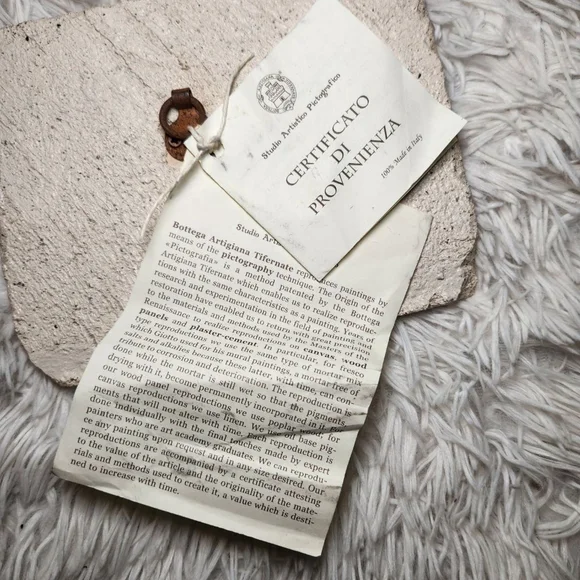 Studio Artistico Pictografico
CERTIFICATO
DI
PROVENIENZA
100% Made in Italy
Studio Ar
Bottega Artigiana Tifernate reproduces paintings by
means of the pictography technique. The Origin of the
«Pictografia» is a method patented by the Bottega
Artigiana Tifernate which enables us to realize reproduc-
tions with the same characteristics as a painting. Years of
research and experimentation in the field of painting and
restoration have enabled us to return with great precision
to the materials and methods used by the Masters of the
Renaissance to realize reproductions on canvas, wood
panels and plaster-cement. In particular, for fresco
type reproductions we use the same type of mortar mix
which Giotto used for his mural paintings, a mortar free of
salts and acids because these latter, with time, can con-
tribute to corrosion and deterioration. The reproduction is
done while the mortar is still wet so that the pigments,
drying with it, become permanently incorporated in it. For
our wood panel reproductions, we use poplar wood; for
canvas reproductions we use linen. We use base pig-
ments that will not alter with time. Each reproduction is
done individually with the final touches made by expert
painters who are art academy graduates. We can reprodu-
ce any painting upon request and in any size desired. Our
reproductions are accompanied by a certificate attesting
to the value of the article and the originality of the mate-
rials and methods used to create it, a value which is desti-
ned to increase with time.